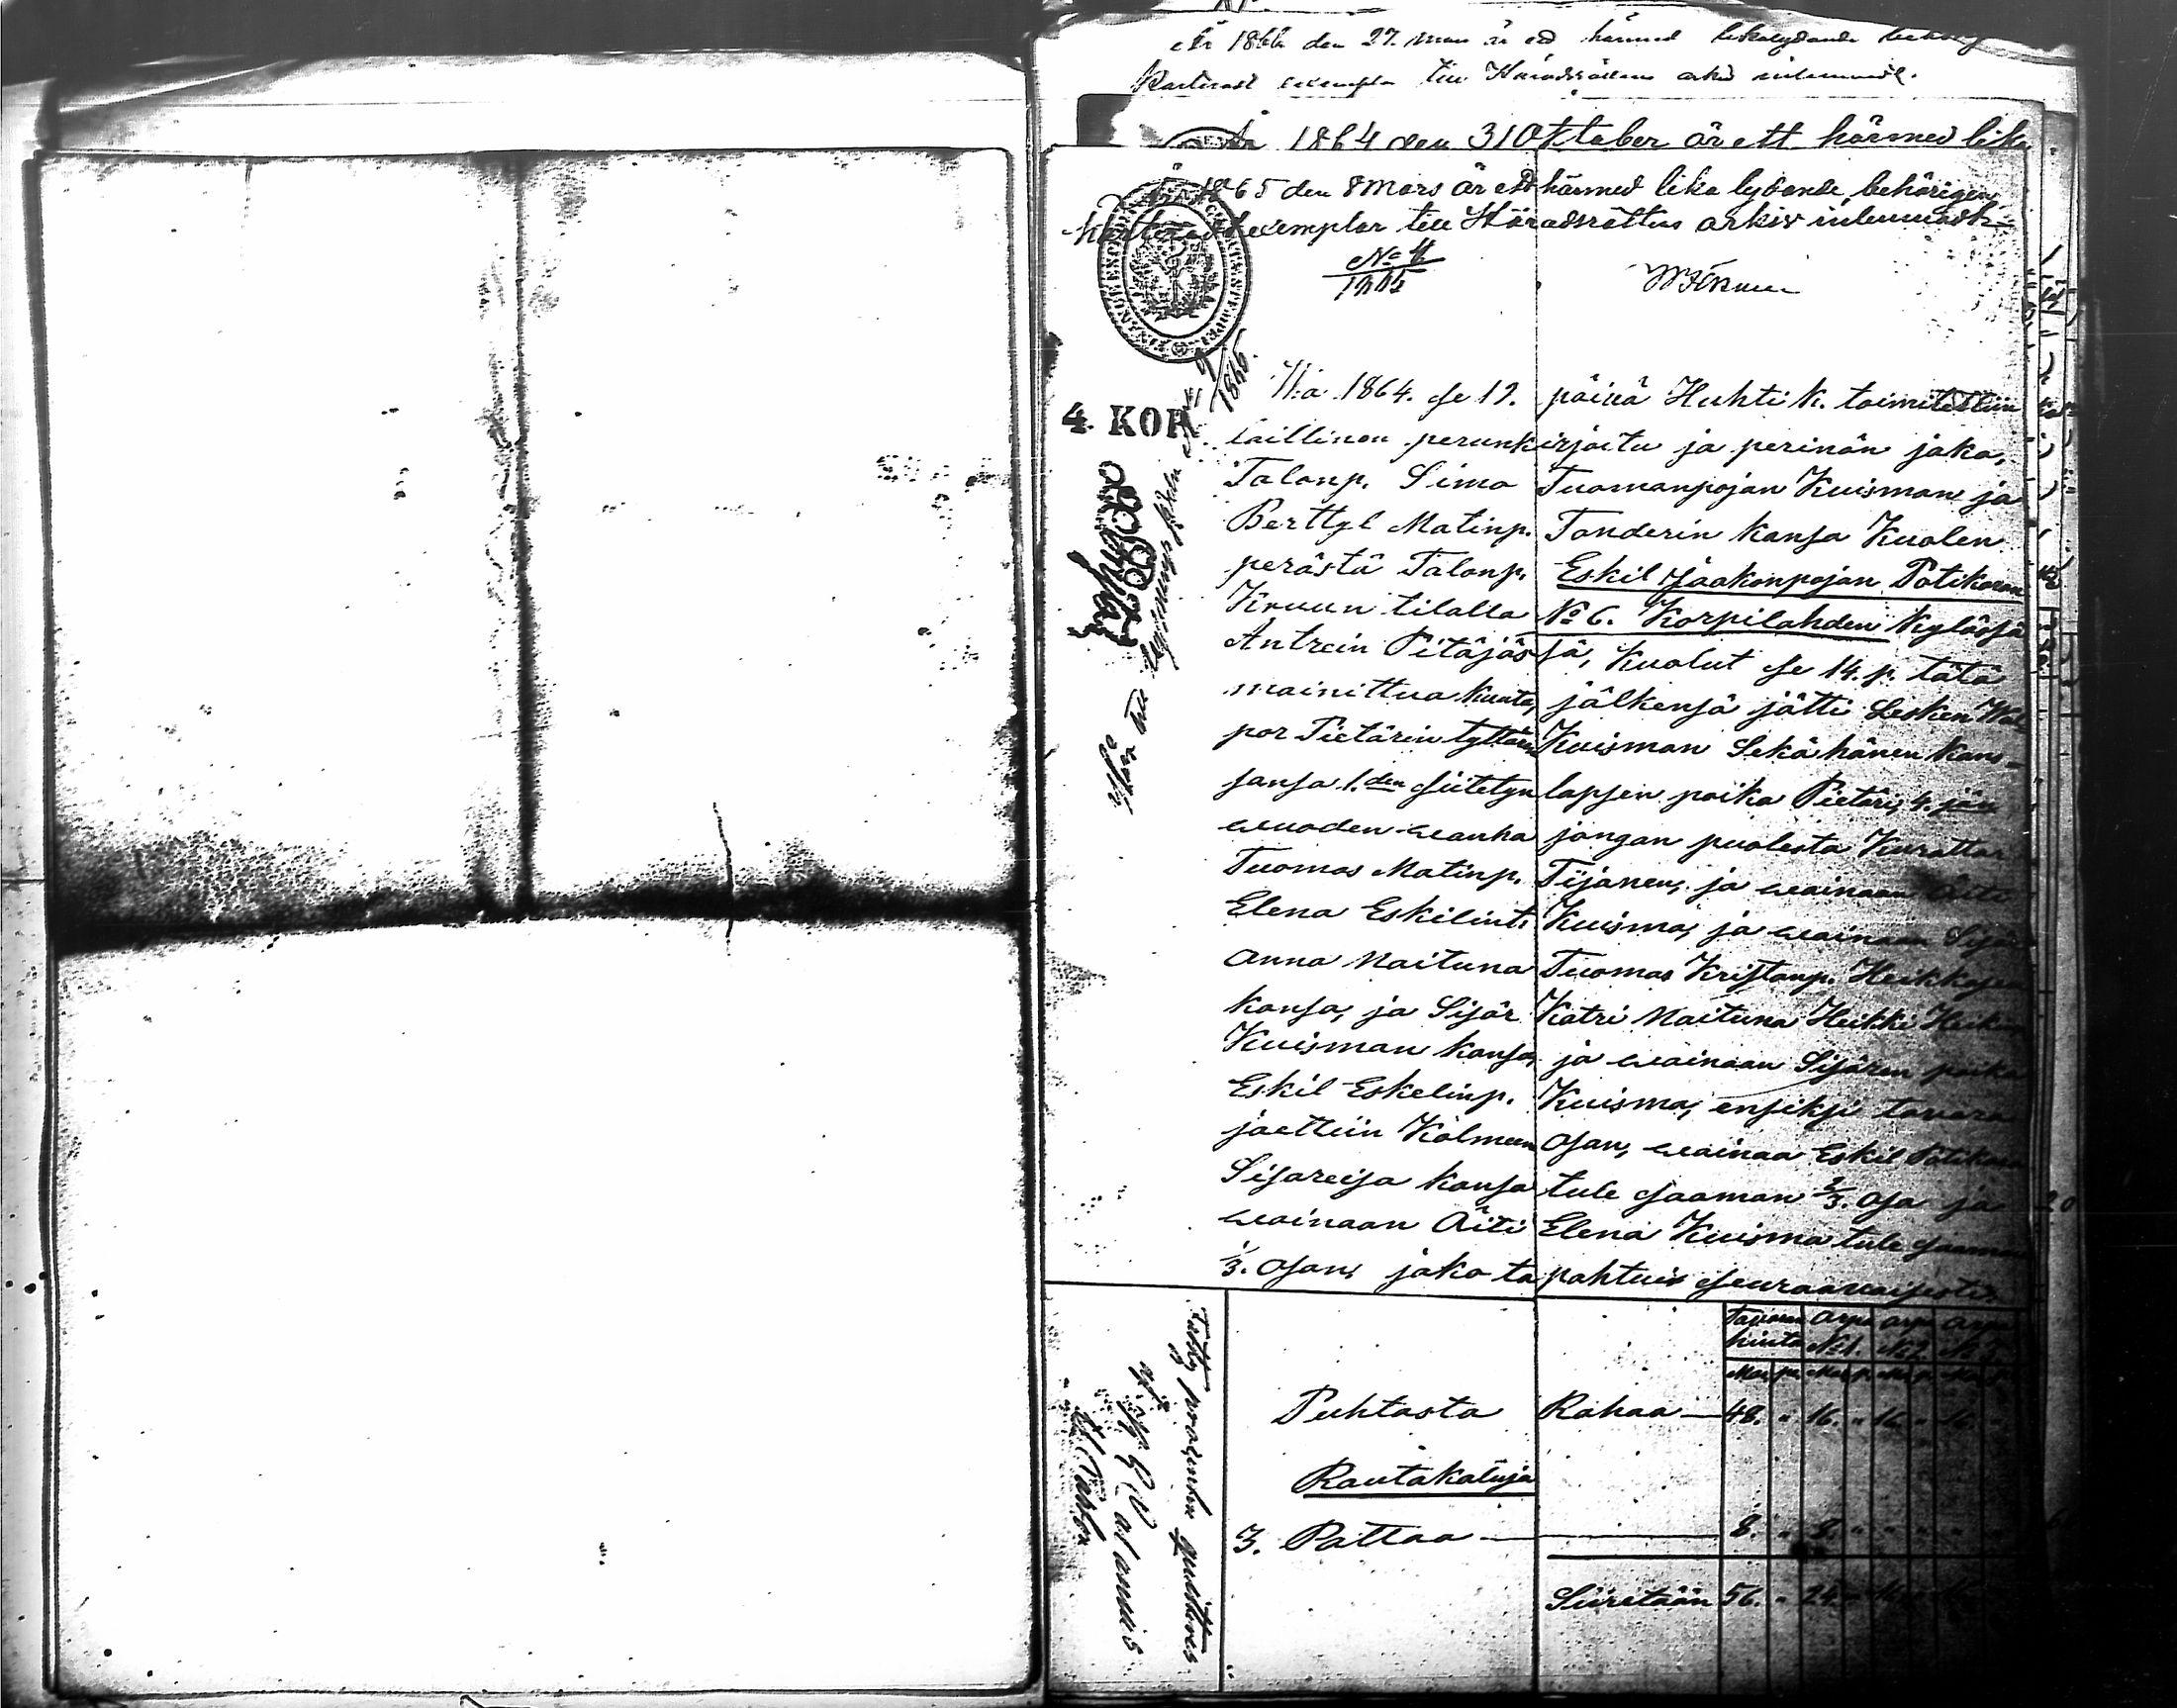 År 1866 den 27. Mars är ett härmed likalydande
Karteradt exemplar till Häradsrättens arkiv inlemnadt.
År 1864 den 31 Oktober är ett härmed lika
År 1865 den 8 Mars är ett härmed lika lydande, behörigen
Karteradt exemplar till Häradsrättens arkiv inlemnadt
No 4
1865
4 KOP.
W:a 1864. se 19. päivä Huhti k. toimitettiin
laillinen perunkirjoitu ja perinön jako,
Talonp. Simo Tuomanpojan Kuisman ja
Berttyl Matinp. Tanderin kansa Kuolen
perästä Talonp. Eskil Jaakonpojan Potikaron
Kruun tilalla No 6. Korpilahden Kylässä
Antrein Pitäjässä, Kuolut se 14. p. tätä
mainittua kuuta, jälkensä jätti Lesken Wal
por Pietärin tyttären Kuisman Sekä hänen kans-
sansa 1.den siitetyn lapsen poika Pietäri 4.
wuoden wanha jongan puolesta Kurattar
Tuomas Matinp. Tijanen, ja wainaan Äiti
Elena Eskilint. Kuisma, ja wainaan Sisär
Anna Naituna Tuomas Kristianp. Heikkosen
kansa, ja Sisär Katri Naituna Heikki Heikin
Kuisman kansa, ja wainaan Sisären poika
Eskil Eskelinp. Kuisma, ensiksi tavara
jaettiin Kolmeen osan, wainaa Eskil Potikaron
Sisareisa kansa tule saaman 2/3. osa ja
wainaan Äiti Elena Kuisma tule saaman
1/3. osan, jako tapahtui seuraavaisesti.
Fattig procenten quitteras
Tavaran Arpa Arpa Arpa
hinta No 1. No 2. No 3.
Puhtasta Rahaa — 48. " 16. " 16. " 16. "
Rautakaluja
3. Pattaa — 8. " 8. "
Siiretään 56. " 24. "